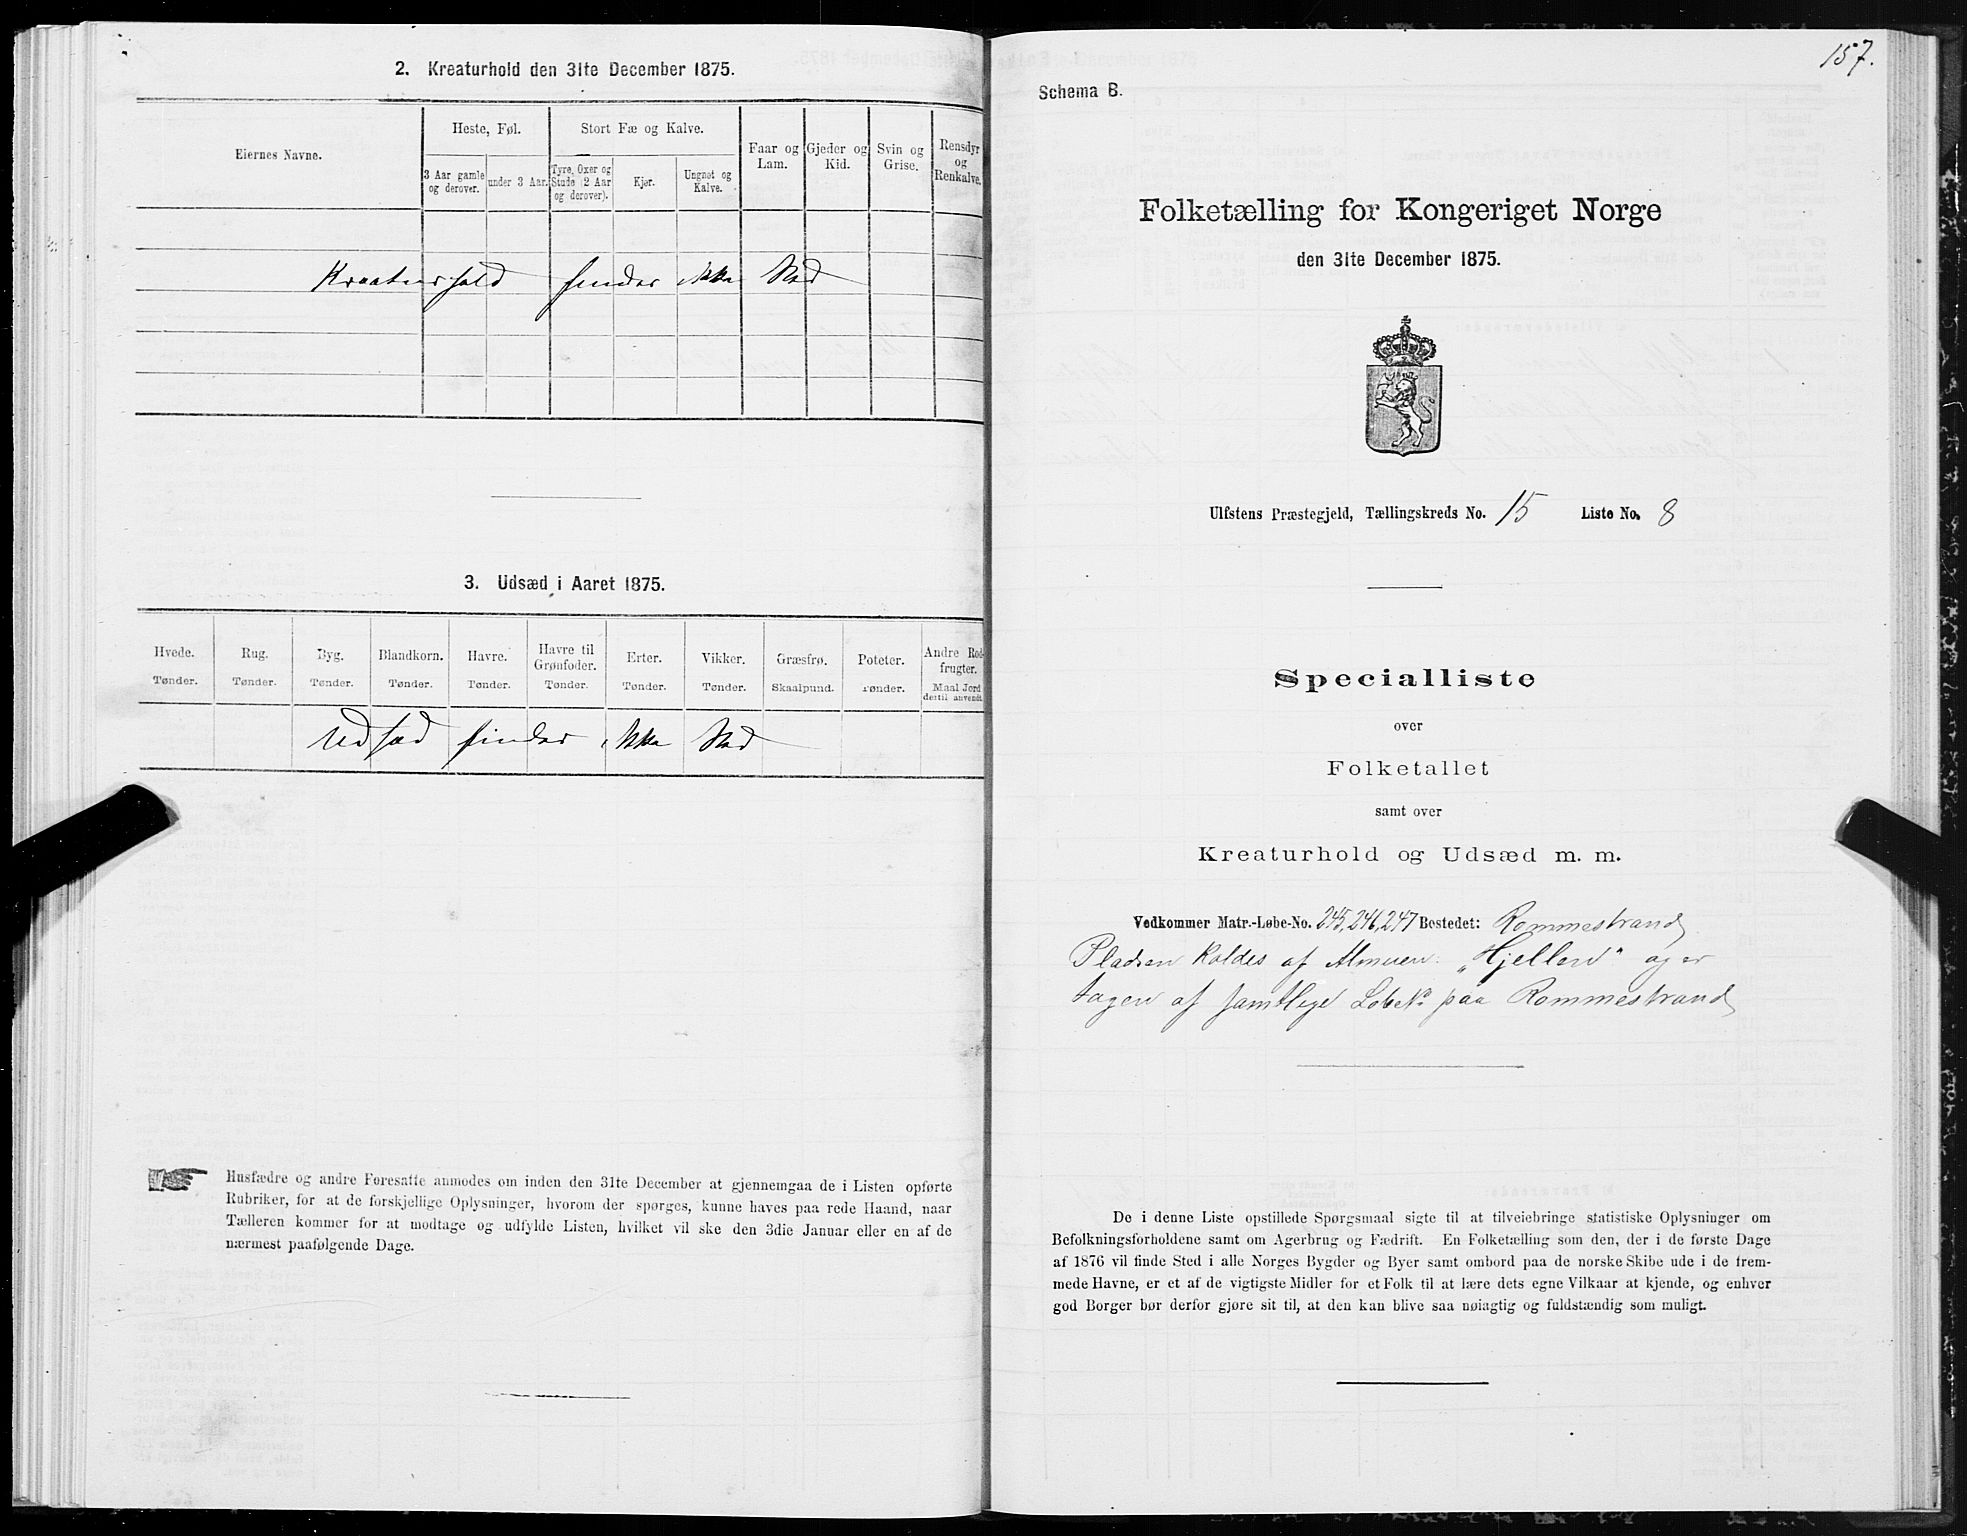 2. Kreaturhold den 31te December 1875.
Eiernes Navne.
Heste, Føl.
Stort Fæ og Kalve.
3 Aar gamle og derover.
under 3 Aar.
Tyre, Oxer og Stude (2 Aar og derover).
Kjør.
Ungnøt og Kalve.
Faar og Lam.
Gjeder og Kid.
Svin og Grise.
Rensdyr og Renkalve.
Kreaturhold finder ikke Sted
3. Udsæd i Aaret 1875.
Hvede. Rug. Byg. Blandkorn. Havre. Havre til Grønfoder. Erter. Vikker. Græsfrø. Poteter. Andre Rodfrugter.
Tønder. Tønder. Tønder. Tønder. Tønder. Tønder. Tønder. Tønder. Skaalpund. Tønder. Maal Jord dertil anvendt.
Udsæd finder ikke Sted
Husfædre og andre Foresatte anmodes om inden den 31te December at gjennemgaa de i Listen opførte
Rubriker, for at de forskjellige Oplysninger, hvorom der spørges, kunne haves paa rede Haand, naar
Tælleren kommer for at modtage og udfylde Listen, hvilket vil ske den 3die Januar eller en af de
nærmest paafølgende Dage.
157.
Schema B.
Folketælling for Kongeriget Norge
den 31te December 1875.
Ulfstens Præstegjeld, Tællingskreds No. 15 Liste No. 8
Specialliste
over
Folketallet
samt over
Kreaturhold og Udsæd m. m.
Vedkommer Matr.-Løbe-No. 245, 246, 247 Bostedet: Rommestrand
Pladsen kaldes af Almuen: „Hjellen" og er
tagen af samtlige LøbeNo paa Rommestrand
De i denne Liste opstillede Spørgsmaal sigte til at tilveiebringe statistiske Oplysninger om
Befolkningsforholdene samt om Agerbrug og Fædrift. En Folketælling som den, der i de første Dage
af 1876 vil finde Sted i alle Norges Bygder og Byer samt ombord paa de norske Skibe ude i de frem-
mede Havne, er et af de vigtigste Midler for et Folk til at lære dets egne Vilkaar at kjende, og enhver
god Borger bør derfor gjøre sit til, at den kan blive saa nøiagtig og fuldstændig som muligt.